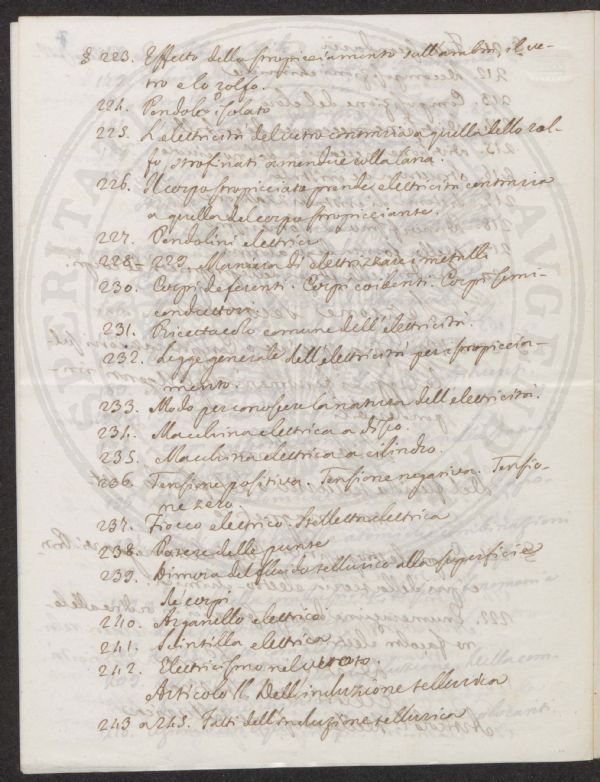 § 223. Effetto dello stropicciamento sull'ambra, il ve-
tro e lo zolfo.
224. Pendolo isolato
225. L'elettricità del vetro contraria a quella dello zol-
fo, strofinati amendue colla lana.
226. Il corpo stropicciato prende elettricità contraria
a quella del corpo stropicciante.
227. Pendolini elettrici
228 - 229. Maniera di elettrizzare i metalli
230. Corpi deferenti. Corpi coibenti. Corpi semi-
conduttori.
231. Ricettacolo comune dell'elettricità.
232. Legge generale dell'elettricità per stropiccia-
mento.
233. Modo per conoscere la natura dell'elettricità.
234. Macchina elettrica a disco.
235. Macchina elettrica a cilindro.
236. Tensione positiva. Tensione negativa. Tensio-
ne zero.
237. Fiocco elettrico. Stelletta elettrica
238. Potere delle punte
239. Dimora del fluido tellurico alla superficie
de' corpi
240. Arganello elettrico.
241. Scintilla elettrica
242. Elettricismo nel vuoto.
Articolo II. Dell'induzione tellurica
243 a 245. Fatti dell'induzione tellurica